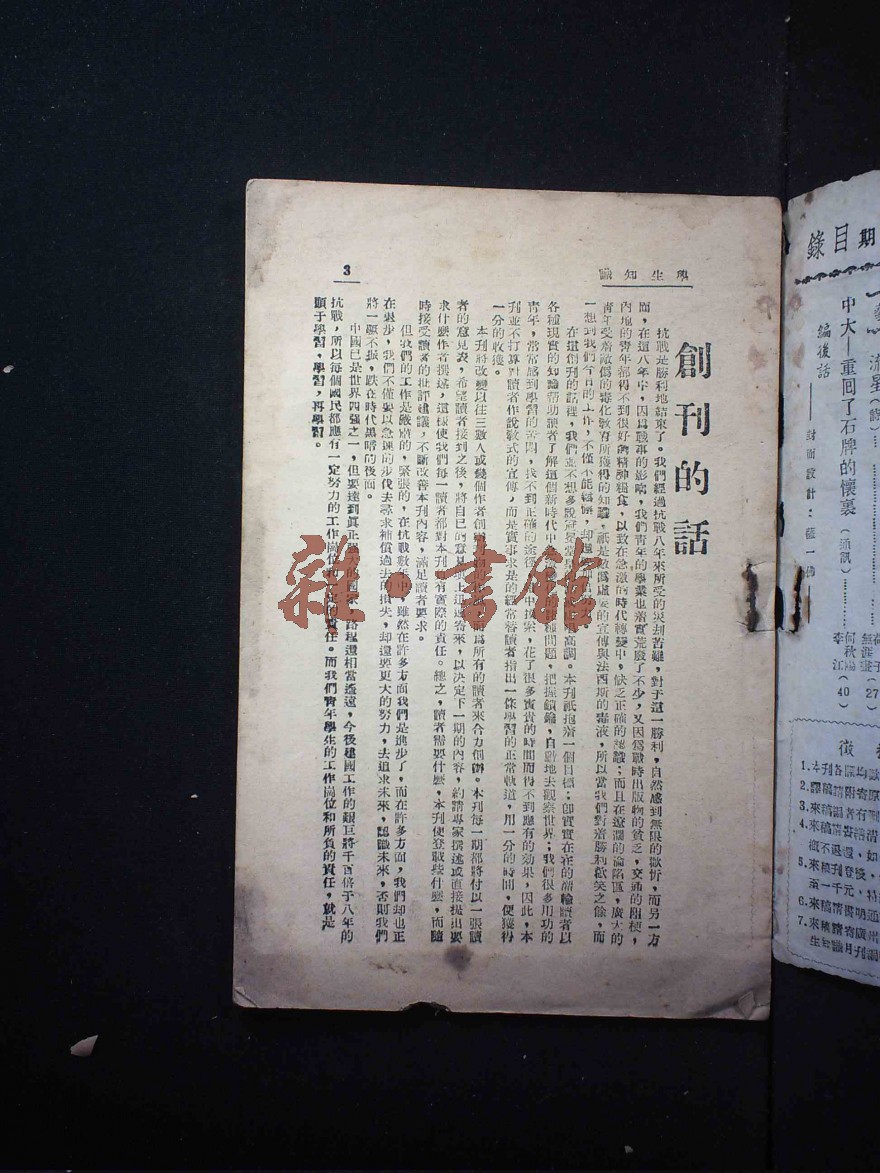 學生知識
3
創刊的話
抗戰是勝利地結束了。我們經過抗戰八年來所受的災刦苦難,對于這一勝利,自然感到無限的歡忻,而另一方
面,在這八年中,因爲戰事的影响,我們青年的學業也着實荒廢了不少,又因爲戰時出版物的貧乏,交通的阻梗,
內地的青年都得不到很好的精神糧食,以致在急激的時代轉變中,缺乏正確的認識;而且在遼濶的淪陷區,廣大的
青年受着敵僞的毒化教育所獲得的知識,祇是敵僞虛妄的宣傳與法西斯的毒液,所以當我們對着勝利歡笑之餘,而
一想到我們今日的工作,不僅不能
在這創刊的話裡,我們並不想多說冠冕堂皇 高調。本刊祇抱着一個目標;卽實實在在的
各種現實的知識幫助讀者了解這個新時代中 種問題,把握鎖鑰,自動地去觀察世界;我們很多用功的
青年,常常感到學習的苦悶,找不到正確的途徑, 中摸索,花了很多寶貴的時間而得不到應有的効果,因此,本
刊並不打算對讀者作說敎式的宣傳,而是實事求是的經常替讀者指出一條學習的正常軌道,用一分的時間,便獲得
一分的收獲。
本刊將改變以往三數人或幾個作者創辦 爲所有的讀者來合力創辦。本刊每一期都將付以一張讀
者的意見表,希望讀者接到之後,將自己的意見 上 寄來,以決定下一期的內容,約請專家撰述或直接提出要
求什麼作者撰述,這樣使我們每一讀者都對本刊 有實際的責任。總之,讀者需要什麼,本刊便登載些什麼,而隨
時接受讀者的批評建議,不斷改善本刊內容,滿足讀者要求。
但我們的工作是嚴肅的,緊張的,在抗戰數年中,雖然在許多方面我們是進步了,而在許多方面,我們却也正
在退步,我們不僅要以急速的步伐去尋求補償過去的損失,却還要更大的努力,去追求未來,認識未來,否則我們
將一蹶不振,跌在時代黑暗的後面。
中國已是世界四强之一,但要達到眞正强大的 路程還相當遙遠,今後建國工作的艱巨將千百倍于八年的
抗戰,所以每個國民都應有一定努力的工作崗位 的責任。而我們靑年學生的工作崗位和所負的責任,就是
願于學習,學習,再學習。
雜·書館
期目錄
流星(詩)
中大—重囘了石牌的懷裏(通訊)
何秋陽
李江(40)
編後話
封面設計:
27
徵
1.本刊各欄均歡
2.譯稿請附寄原
3.來稿編者有刪
4.來稿請寄繕清
槪不退還,如
5.來稿刊登後,
至一千元,特
6.來稿請書明通
7.來稿請寄廣州
生知識月刊